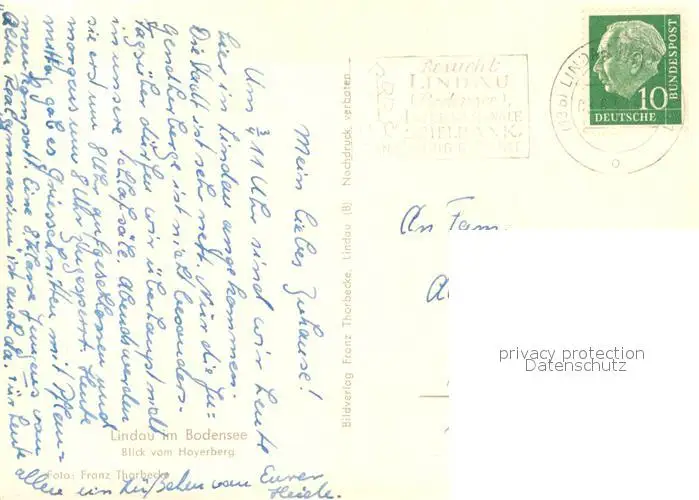 Mein liebes Zuhause!
Um ¾ 11 Uhr sind wir heute
hier in Lindau angekommen.
Die Stadt ist sehr nett. Nur die Ju-
gendherberge ist nicht besonders.
Tagsüber dürfen wir überhaupt nicht
in unsere Schlafsäle. Abends werden
sie erst um 8 Uhr aufgeschlossen und
morgens um 8 Uhr zugesperrt. Heute
mittag gab es Griesschnitten mit Pflau-
menkompott. Eine 8 Klasse Jungens vom
Alten Realgymnasium ist auch da. Für heute
allen ein Grüßchen von Eurer
Heide.
Lindau im Bodensee
Blick vom Hoyerberg
Foto: Franz Thorbecke
Bildverlag Franz Thorbecke, Lindau (B) Nachdruck verboten
Besucht
LINDAU
Bodensee
SPIELBANK
LINDAU
10
DEUTSCHE
BUNDESPOST
An Fam.
privacy protection
Datenschutz